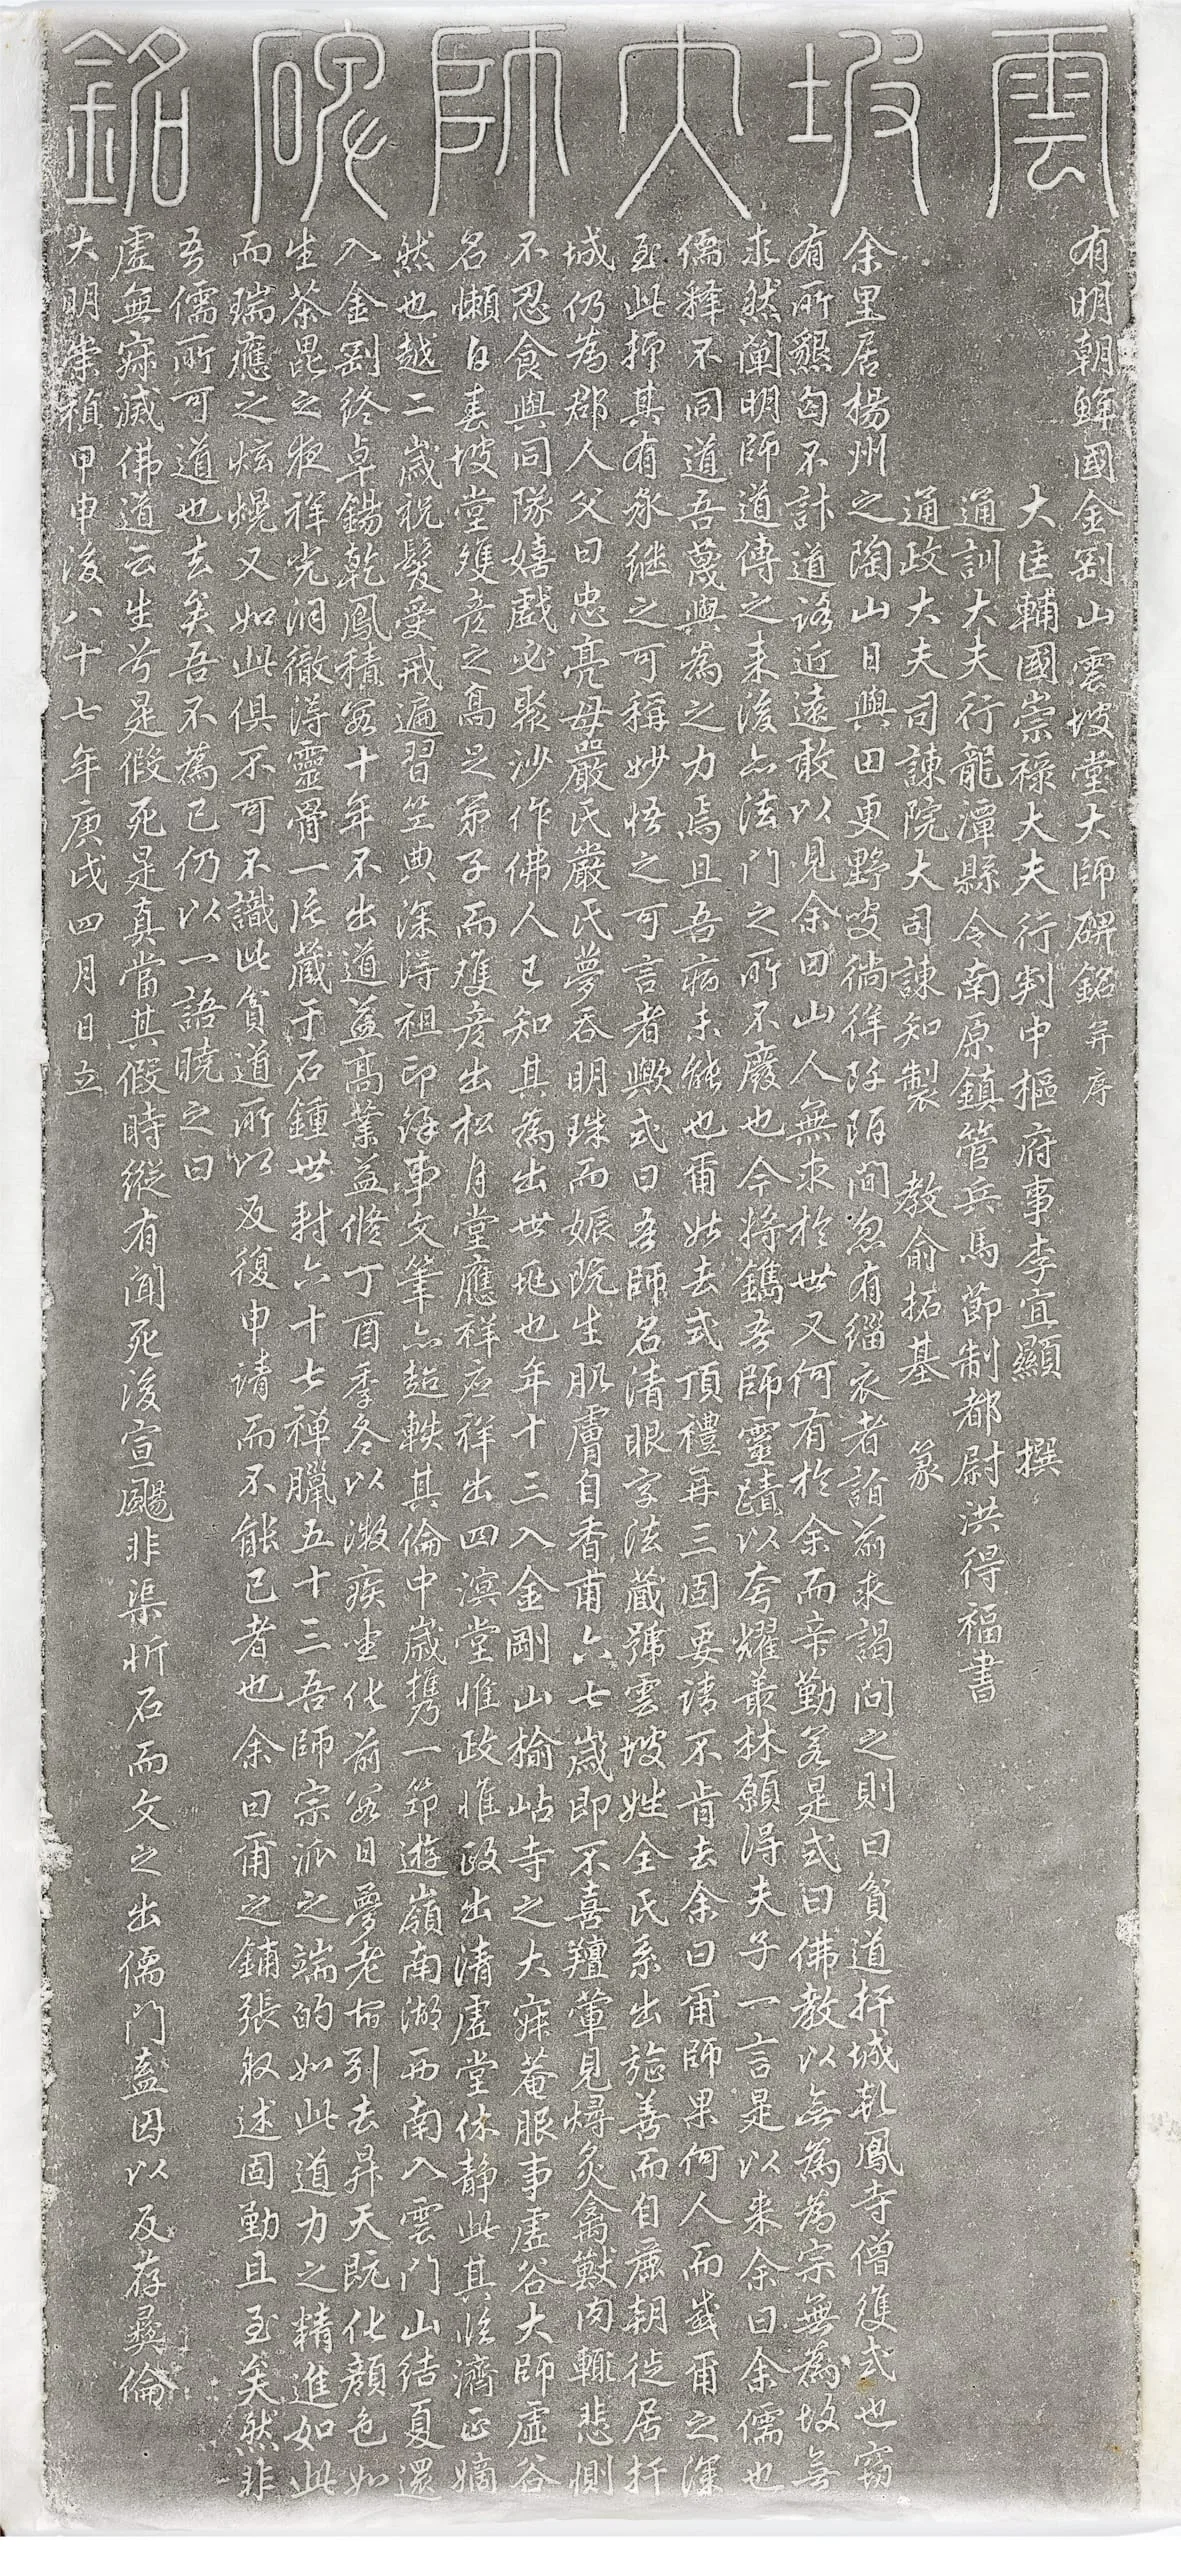 雲坡大師碑銘
有明朝鮮國金剛山雲坡堂大師碑銘 并序
大匡輔國崇祿大夫行判中樞府事李宜顯 撰
通訓大夫行龍潭縣令南原鎮管兵馬節制都尉洪得福書
通政大夫司諫院大司諫知製 教俞拓基 篆
余里居楊州之陶山日與田更野叟徜徉阡陌間忽有緇衣者詣前求謁問之則曰貧道扞城乾鳳寺僧隻式也竊
有所懇匈不計道路近遠敢以見余曰山人無求於世又何有於余而辛勤若是式曰佛教以無為為宗無為故無
求然闡明師道傳之来後亦法門之所不廢也今将鐫吾師靈蹟以夸耀叢林願得夫子一言是以来余曰余儒也
儒釋不同道吾蔑與為之力焉且吾病未能也爾姑去式頂禮再三固要請不肯去余曰爾師果何人而式爾之深
至此抑其有承継之可稱妙悟之可言者歟式曰吾師名清眼字法藏號雲坡姓全氏系出旌善而自麗朝徙居扞
城仍為郡人父曰忠亮母嚴氏嚴氏夢呑明珠而娠既生肌膚自香甫六七歲即不喜羶葷見燖炙禽獸肉輒悲惻
不忍食與同隊嬉戲必聚沙作佛人已知其為出世也年十三入金剛山楡岾寺之大寂菴服事虛谷大師虛谷
名懶白春坡堂雙彥之高足第子而雙彥出松月堂應祥應祥出四溟堂惟政惟政出清虛堂休静此其臨濟正嫡
然也越二歲祝髮受戒遍習竺典深得祖印餘事文筆亦超軼其倫中歲携一筇遊嶺南湖西南入雲門山結夏還
入金剛終卓錫乾鳳積若十年不出道益高業益修丁酉季冬以微疾坐化前若日夢老宿引去昇天既化顔色如
生茶毘之夜祥光洞徹得靈骨一片藏于石鍾世壽六十七禅臘五十三吾師宗派之端的如此道力之精進如此
而瑞應之炫熀又如此俱不可不識此貧道所以反復申請而不能已者也余曰爾之鋪張叙述固勤且至矣然非
吾儒所可道也去矣吾不為已仍以一語曉之曰
虛無寂滅佛道云生兮是假死是真當其假時縱有聞死後宣颺非渠忻石而文之出儒門盍因以反存彛倫
大明崇禎甲申後八十七年庚戌四月日立